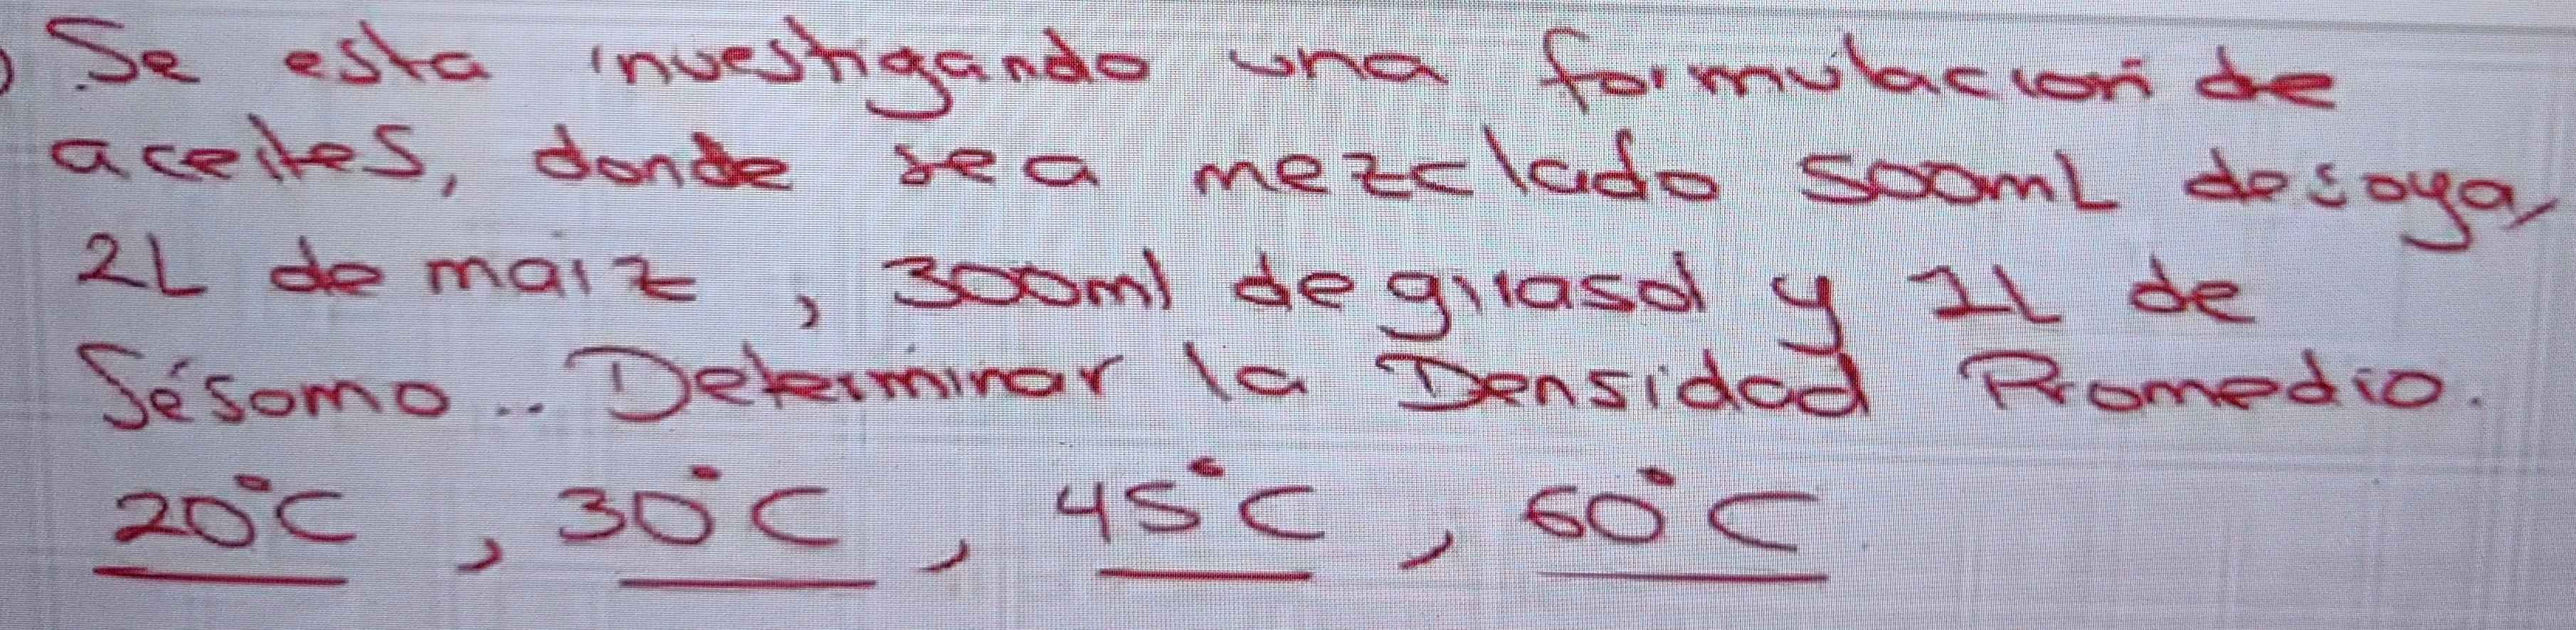 ) Se esta investigando una formulación de
aceites, donde sea mezclado 500mL de soya,
2L de maiz, 300ml de girasol y 1L de
Sésomo.. Determinar la Densidad Promedio.
20°C, 30°C, 45°C, 60°C